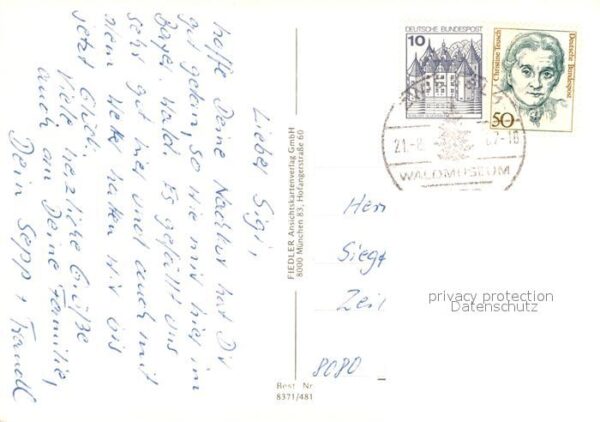 Lieber Sigi,
hoffe Deine Nachkur hat Dir
gut getan, so wie mir hier im
Bayr. Wald. Es gefällt uns
sehr gut hier und auch mit
dem Wetter hatten wir bis
jetzt Glück.
Viele herzliche Grüße
auch an Deine Familie,
Dein Sepp + Traudl
FIEDLER Ansichtskartenverlag GmbH
8000 München 83, Hofangerstraße 60
Best. Nr.
8371/481
10
DEUTSCHE BUNDESPOST
Christine Teusch
Deutsche Bundespost
50
21.-8
87-16
WALDMUSEUM
Herr
Siegf
Zeil
8080
privacy protection
Datenschutz